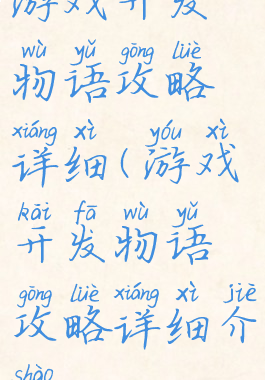 游戏开发
wù yǔ gōng lüè
物语攻略
xiáng xì yóu xì
详细(游戏
kāi fā wù yǔ
开发物语
gōng lüè xiáng xì jiè
攻略详细介
shào